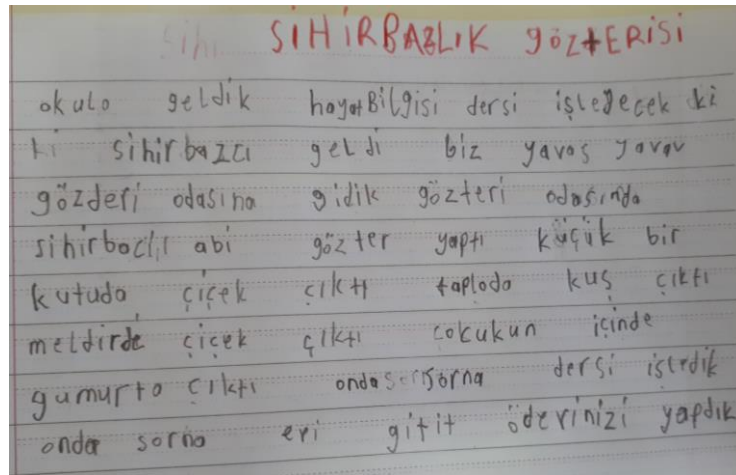 SİHİRBAZLIK gözTERİSİ
okula geldik hayatBilgisi dersi işleyecek ki
ki sihirbazcı geldi biz yavaş yavaş
gözderi odasına gidik gözteri odasında
abi gözter yaptı küçük bir
kutuda çiçek çıktı taploda kuş çıktı
meldirde çiçek çıktı cokukun içinde
gumurta çıktı dersi işledik
onda sorna evi gitit öderinizi yapdık